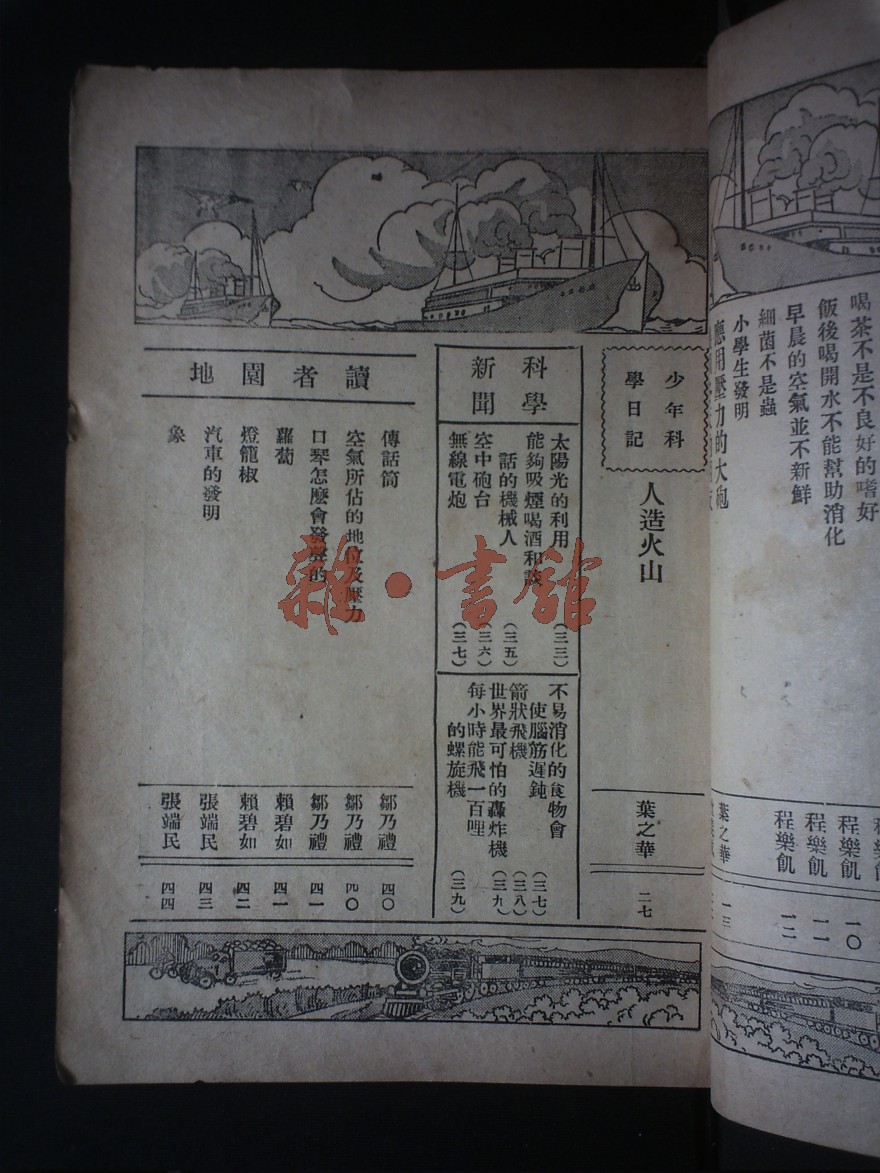 喝茶不是不良好的嗜好
飯後喝開水不能幫助消化
早晨的空氣並不新鮮
細菌不是蟲
小學生發明
應用壓力的大砲
程樂飢
程樂飢
程樂飢
程樂飢
葉之華
一〇
一一
一二
一三
少年科
學日記
人造火山
葉之華
二七
科學
新聞
太陽光的利用
(三三)
能夠吸煙喝酒和談
話的機械人
(三五)
空中砲台
(三六)
無線電炮
(三七)
不易消化的食物會
使腦筋遲鈍
(三七)
箭狀飛機
(三八)
世界最可怕的轟炸機
(三九)
每小時能飛一百哩
的螺旋機
(三九)
讀者園地
傳話筒
鄒乃禮
四〇
空氣所佔的地位及壓力
鄒乃禮
四〇
口琴怎麼會發聲的
鄒乃禮
四一
蘿蔔
賴碧如
四一
燈籠椒
賴碧如
四二
汽車的發明
張端民
四三
象
張端民
四四
雜·書館